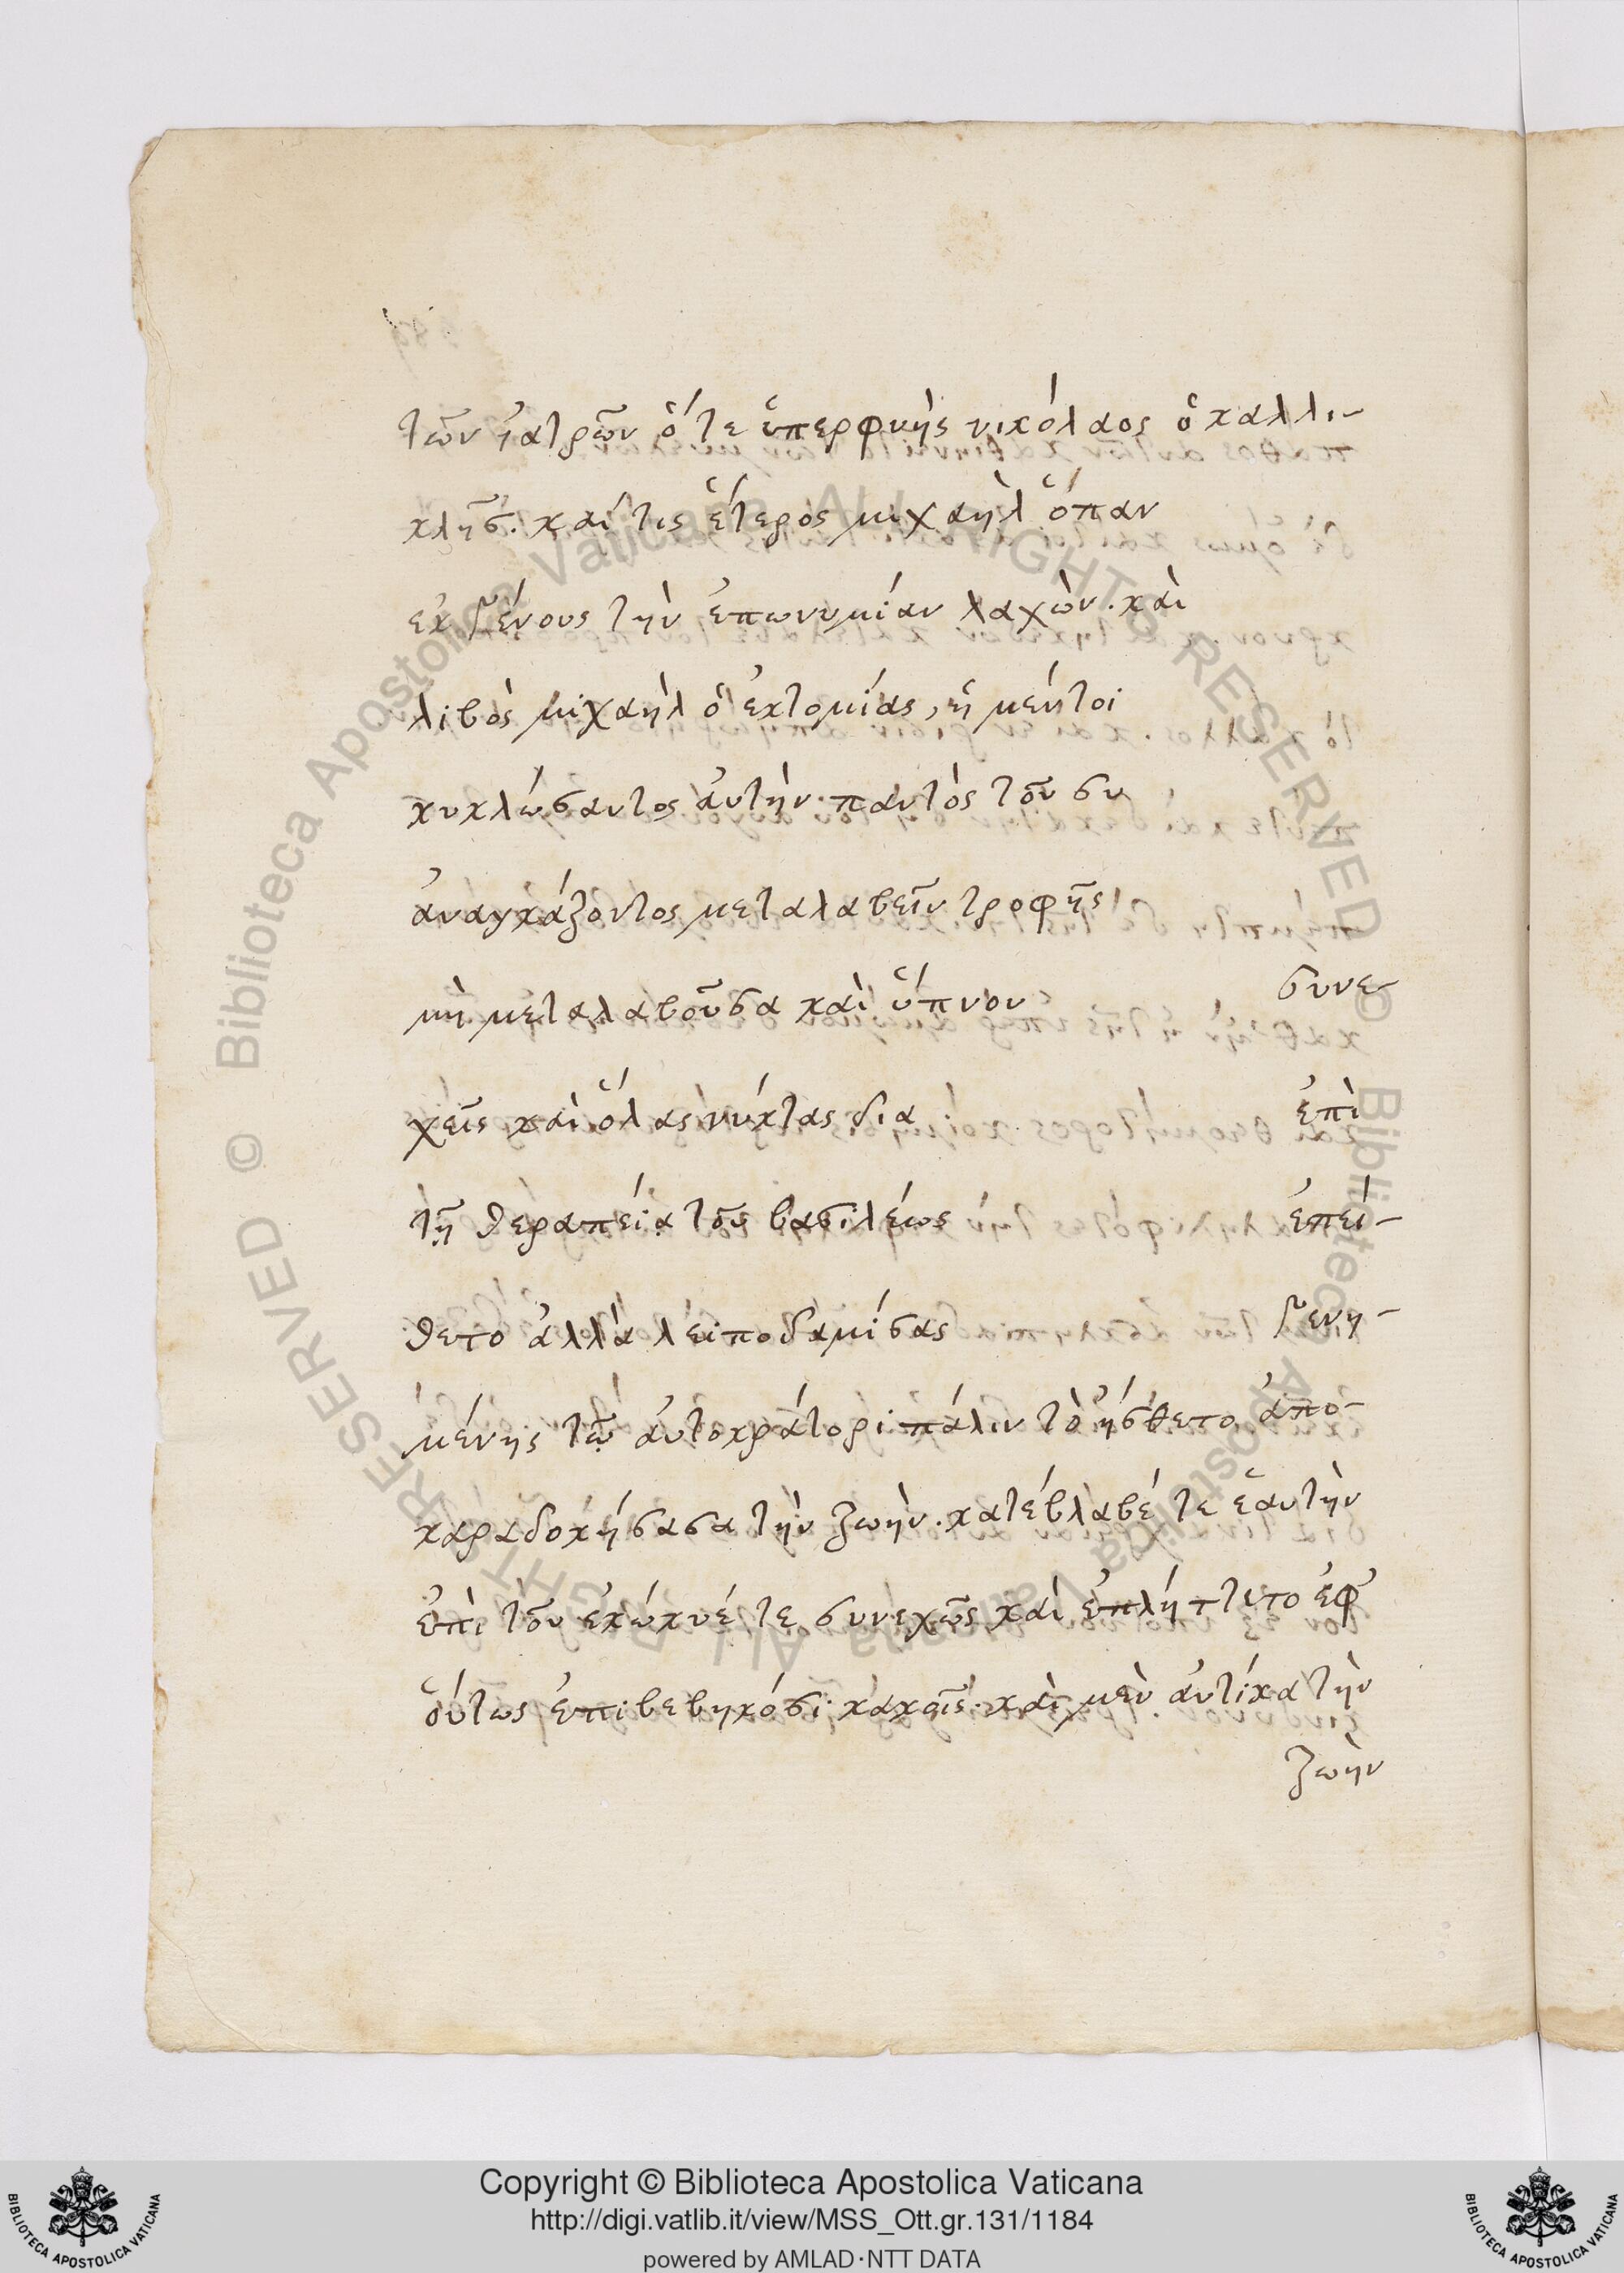 τῶν ἰατρῶν ὅ τε ὑπερφυὴς νικόλαος ὁ καλλι-
κλῆς. καί τις ἕτερὸς μιχαὴλ ὅπαν
ἐκ γένους τὴν ἐπωνυμίαν λαχὼν. καὶ
λιβὸς μιχαὴλ ὁ ἐκτομίας, ἡ μέντοι
κυκλώσαντος ἀυτὴν παντὸς τοῦ συ
ἀναγκάζοντος μεταλαβεῖν τροφῆς
μὴ μεταλαβοῦσα καὶ ὕπνον συνε-
χεῖς καὶ ὅλας νύκτας δια ἐπὶ
τῇ θεραπείᾳ τοῦ βασιλέως ἐπεί-
θετο ἀλλὰ λειποδαμίσας γενη-
μένης τῷ ἀυτοκράτορι πάλιν τὸ ἤσθετο ἀπο-
καραδοκήσασα τὴν ζωὴν. κατέβλαβέ τε ἑαυτὴν
ἐπὶ τοῦ ἐκώκυέ τε συνεχῶς καὶ ἐπλήττετο ἐφ
ὅυτως ἐπιβεβηκόσι κακοῖς. καὶ μὲν ἀυτίκα τὴν
ζωὴν
Copyright © Biblioteca Apostolica Vaticana
http://digi.vatlib.it/view/MSS_Ott.gr.131/1184
powered by AMLAD·NTT DATA
© Biblioteca Apostolica Vaticana ALL RIGHTS RESERVED
© Biblioteca Apostolica Vaticana ALL RIGHTS RESERVED
BIBLIOTECA APOSTOLICA VATICANA
BIBLIOTECA APOSTOLICA VATICANA